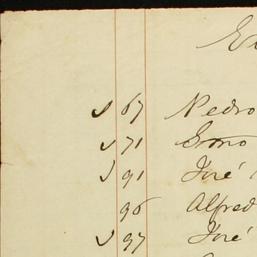 67 Pedro
71
91 José
96 Alfred
97 José